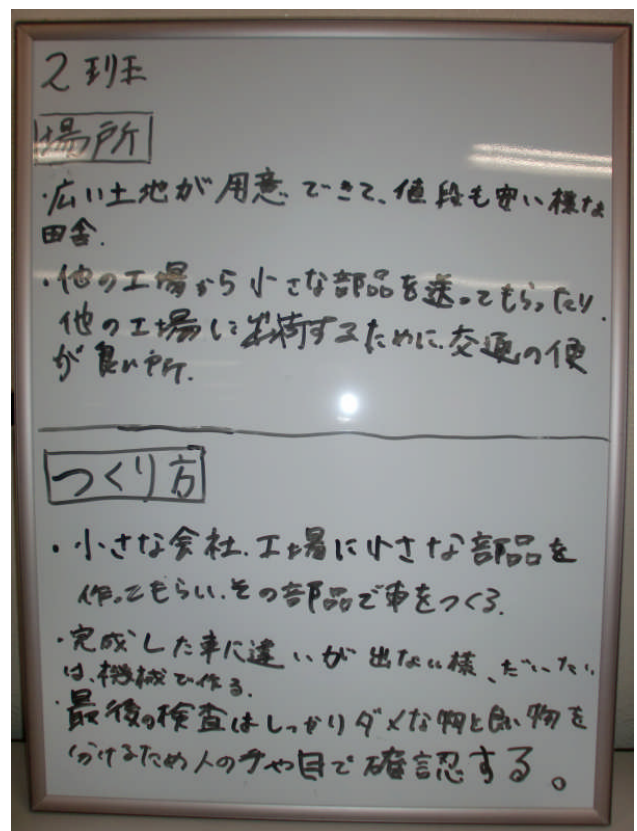 2班
場所
・広い土地が用意できて、値段も安い様な
田舎.
・他の工場から小さな部品を送ってもらったり.
他の工場に出荷するために.交通の便
が良い所.
つくり方
・小さな会社.工場に小さな部品を
作ってもらい.その部品で車をつくる.
・完成した車に違いが出ない様、だいたい
は、機械で作る.
・最後の検査はしっかりダメな物と良い物を
分けるため人の手や目で確認する。